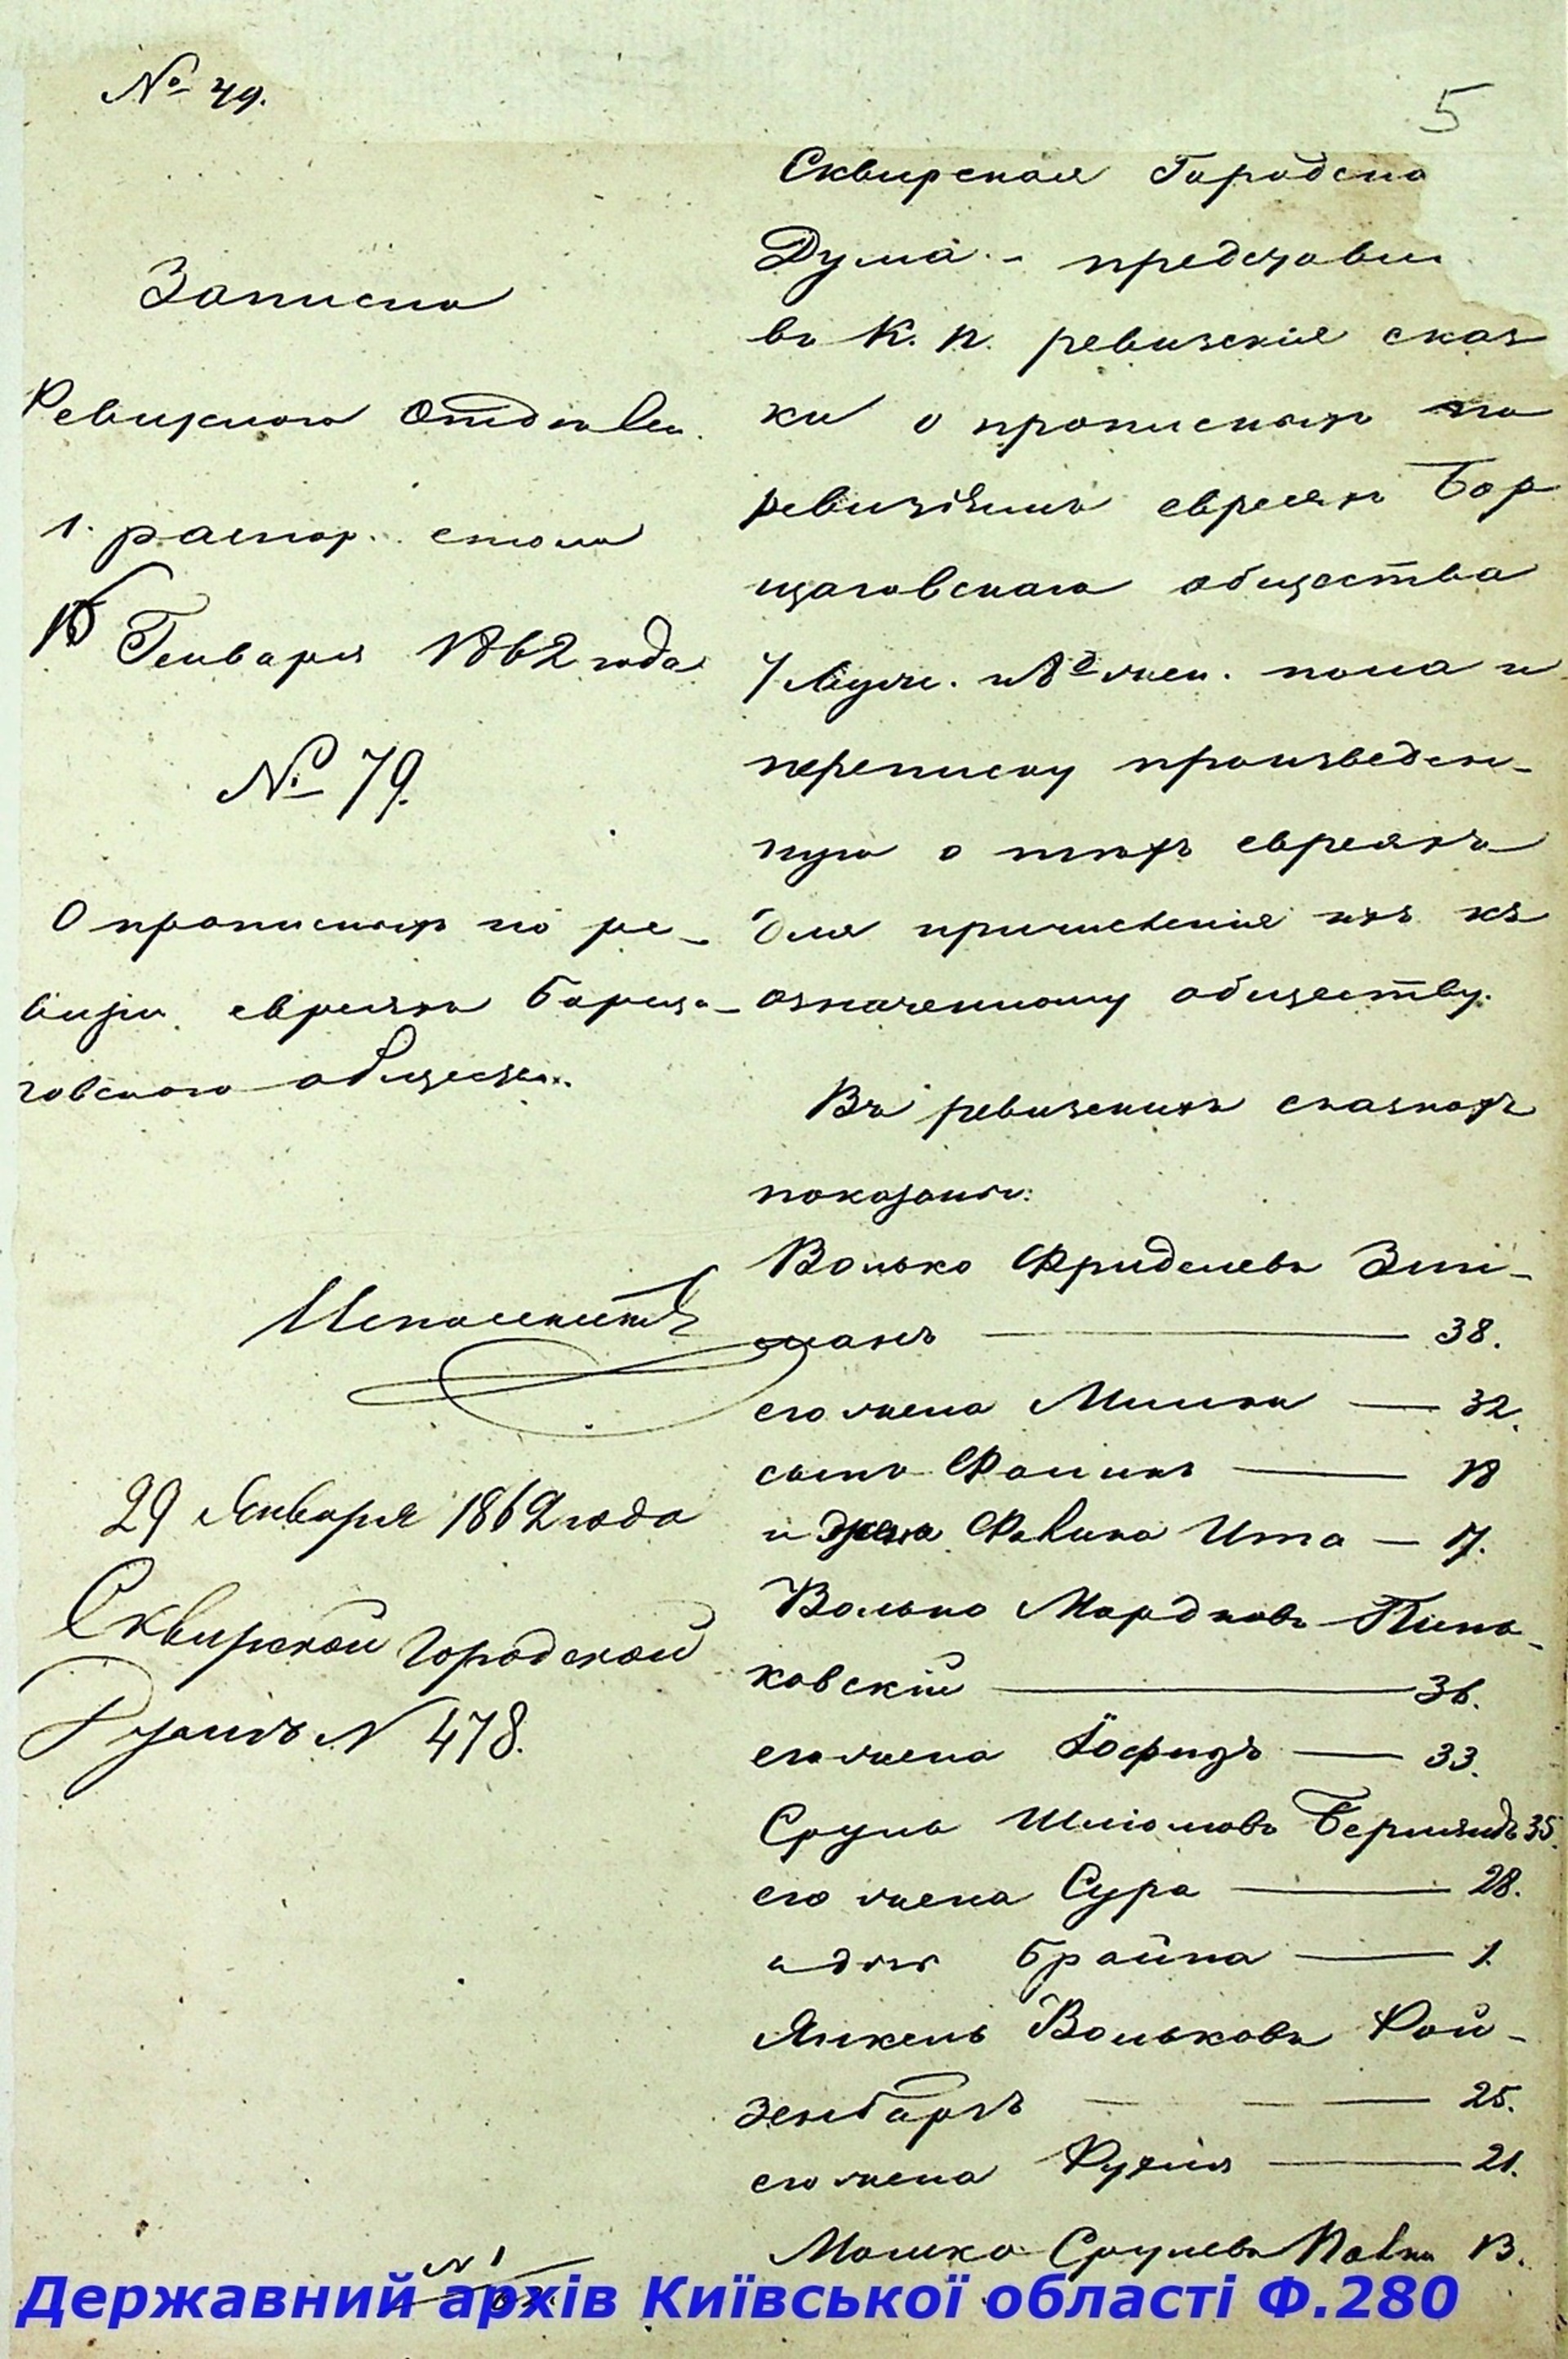 № 79.
5
Записка
Ревизскаго Отделен.
1. распор. стола
15 Генваря 1862 года
№ 79.
О прописныхъ по ре-
визiи евреяхъ Борща-
говскаго обществ.
Исполнить
29 Января 1862 года
Сквирской Городской
Думѣ № 478.
№ 1
Сквирская Городска
Дума - представи
въ К. П. ревизскiя сказ
ки о прописныхъ по
ревизiямъ евреяхъ Бор
щаговскаго общества
7 муж. и 8й жен. пола и
переписку произведен-
ную о тѣхъ евреяхъ
для причисленiя ихъ къ
означенному обществу.
Въ ревизскихъ сказкахъ
показаны:
Волько Фриделевъ Зил-
манъ 38.
его жена Милка 32.
сынъ Фаликъ 18
и жена Фалика Ита 17.
Волько Мордковъ Пина-
ковскiй 36.
его жена 33.
Сруль Шліомовъ Берлядъ 35.
его жена Сура 28.
и дочь Брайна 1.
Янкель Вольковъ Рой-
зенбаргъ 25.
его жена Рухля 21.
Мошко Срулевъ 18.
Державний архів Київської області Ф.280